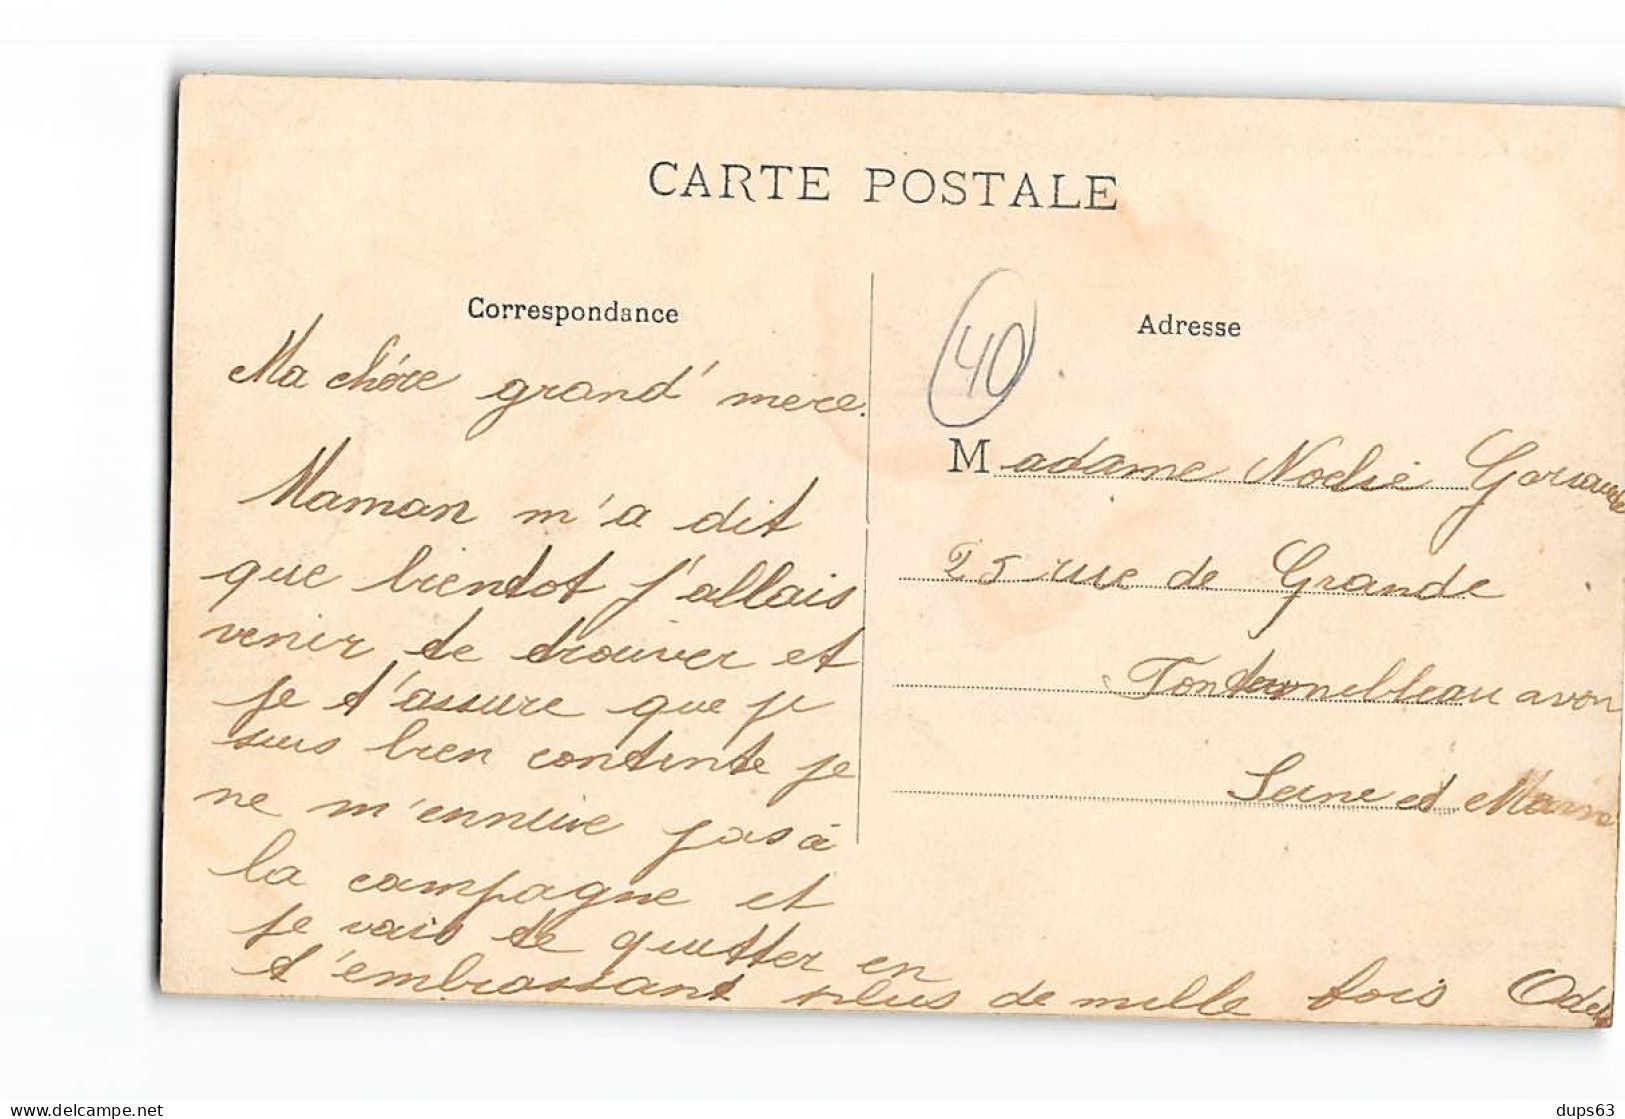 CARTE POSTALE
Correspondance
Ma chére grand' mere.
Maman m'a dit
que bientot j'allais
venir te trouver et
je t'assure que je
suis bien contente je
ne m'ennuie pas à
la campagne et
je vais te quitter en
t'embrassant plus de mille fois
Adresse
40
Madame Noelie
25 rue de Grande
Fontainebleau avon
Seine et Marne
delcampe.net
dups63